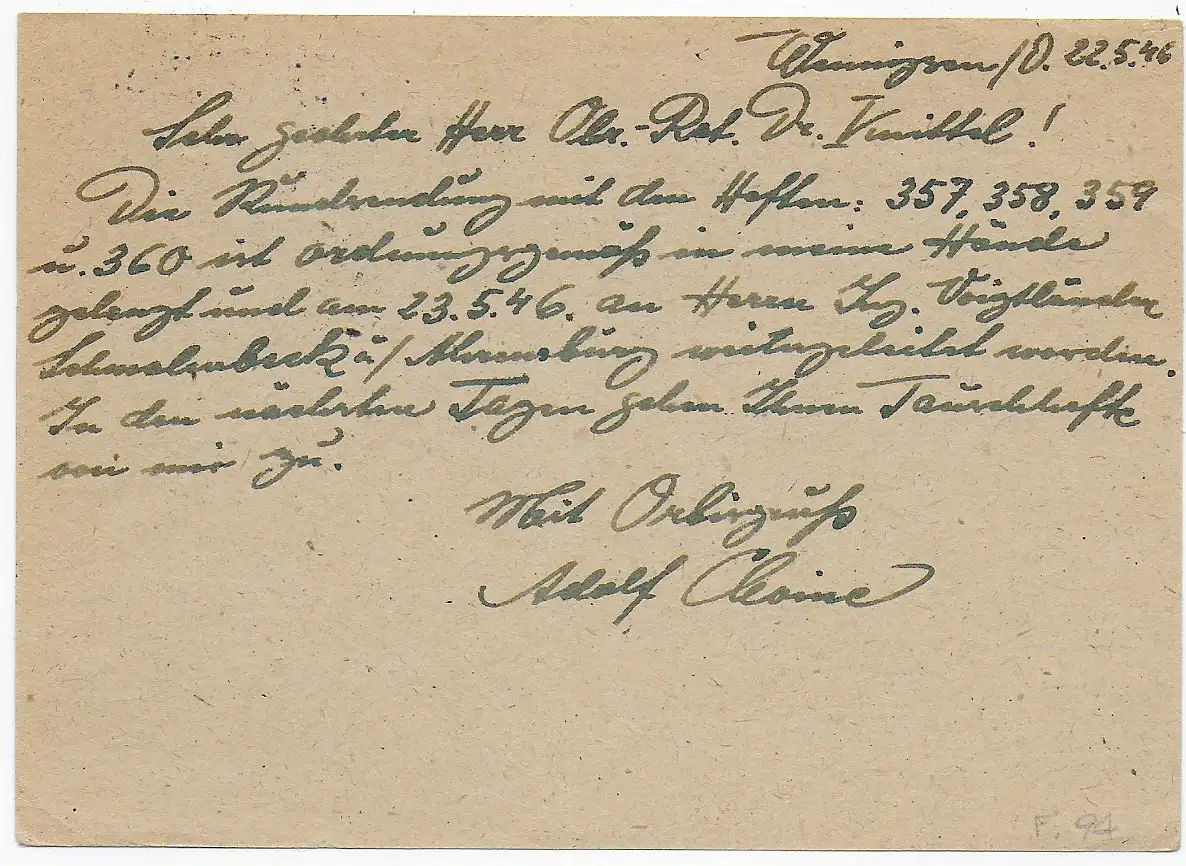 Wennigsen/D. 22.5.46
Sehr geehrter Herr Obr.-Rat. Dr. Knittel!
Die Rundsendung mit den Heften: 357, 358, 359
u. 360 ist ordnungsgemäß in meine Hände
gelangt und am 23.5.46. an Herrn Ing. Voigtländer
Schmalenbeck ü/ Ahrensburg weitergeleitet worden.
In den nächsten Tagen gehen Ihnen Tauschhefte
von mir zu.
Mit Orbisgruß
Adolf
F. 94